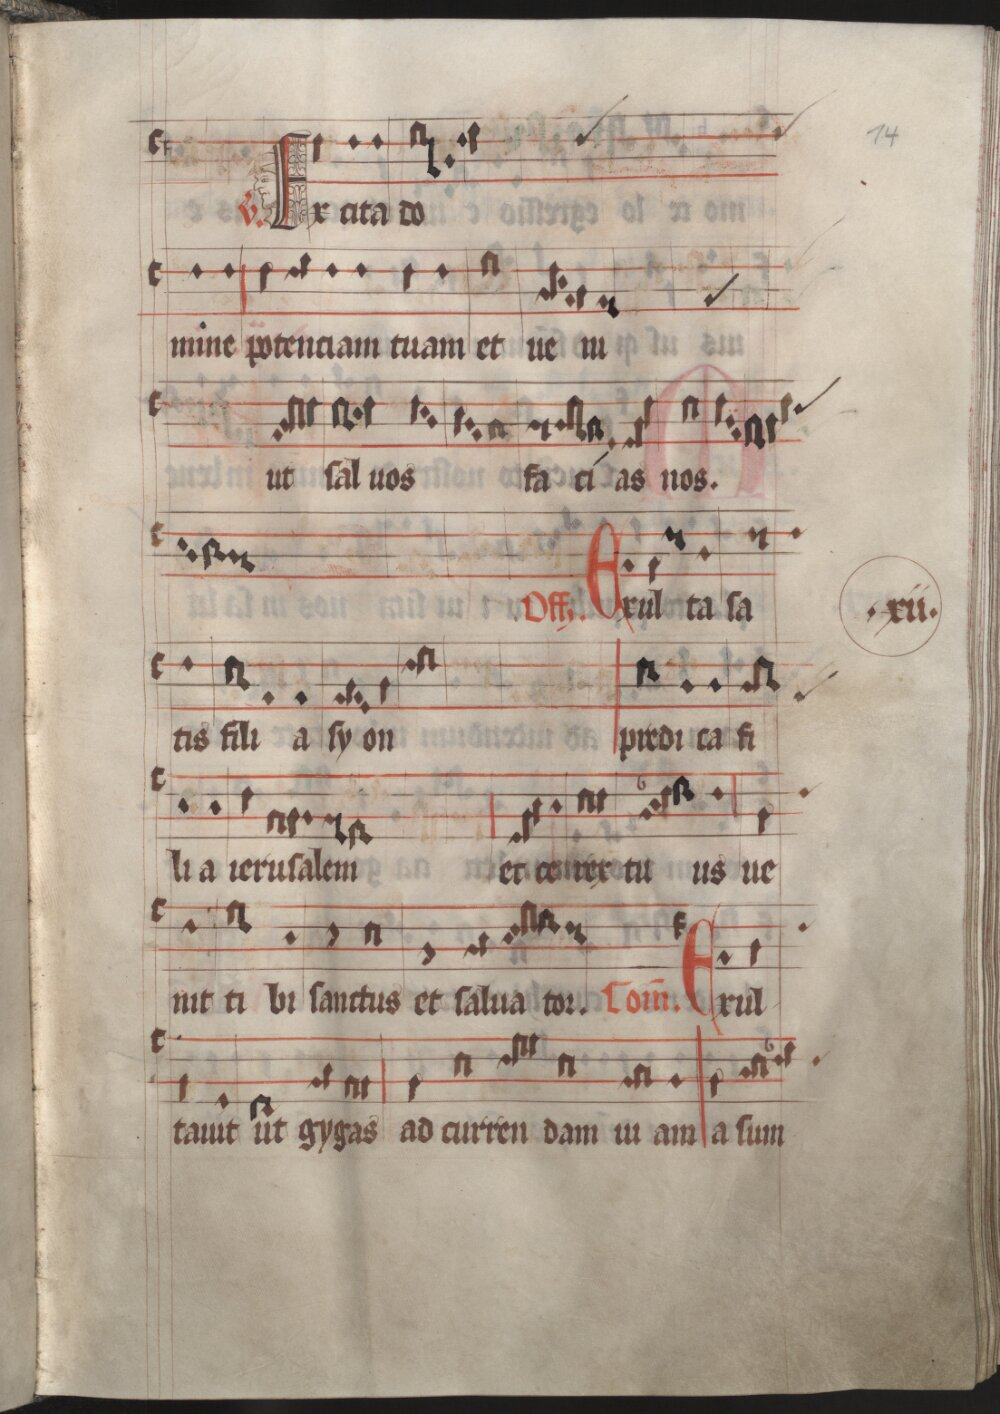 14
V. Ex cita do
mine potenciam tuam et ue ni
ut sal uos fa ci as nos.
Off. Exul ta sa
.xii.
tis fili a sy on predi ca fi
li a ierusalem et ce rex tu us ue
nit ti bi sanctus et salua tor. Com. Exul
tauit ut gygas ad curren dam ui am a sum